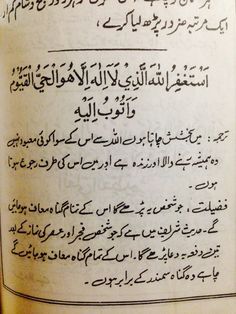 ایک مرتبہ ضرور پڑھ لیا کرے،
اَسْتَغْفِرُ اللّٰهَ الَّذِیْ لَآ اِلٰهَ اِلَّا هُوَ الْحَیُّ الْقَیُّوْمُ
وَاَتُوْبُ اِلَیْهِ
ترجمہ: میں بخشش چاہتا ہوں اللہ سے اس کے سوا کوئی معبود نہیں
وہ ہمیشہ رہنے والا اور زندہ ہے اور میں اس کی طرف رجوع ہوتا
ہوں۔
فضیلت: جو شخص یہ پڑھے گا اس کے تمام گناہ معاف ہو جائیں
گے۔ حدیث شریف میں ہے کہ جو شخص فجر اور عصر کی نماز کے بعد
تین دفعہ یہ دعا پڑھے گا۔ اس کے تمام گناہ معاف ہو جائیں گے
چاہے وہ گناہ سمندر کے برابر ہوں۔